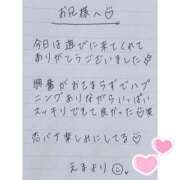 お兄様へ♡
今日は遊びに来てくれて
ありがとうございました
興奮がおさまらずでハプ
ニングありながらいっぱい
スッキリできて良かった
バイ楽しみにしてる♡
えまより